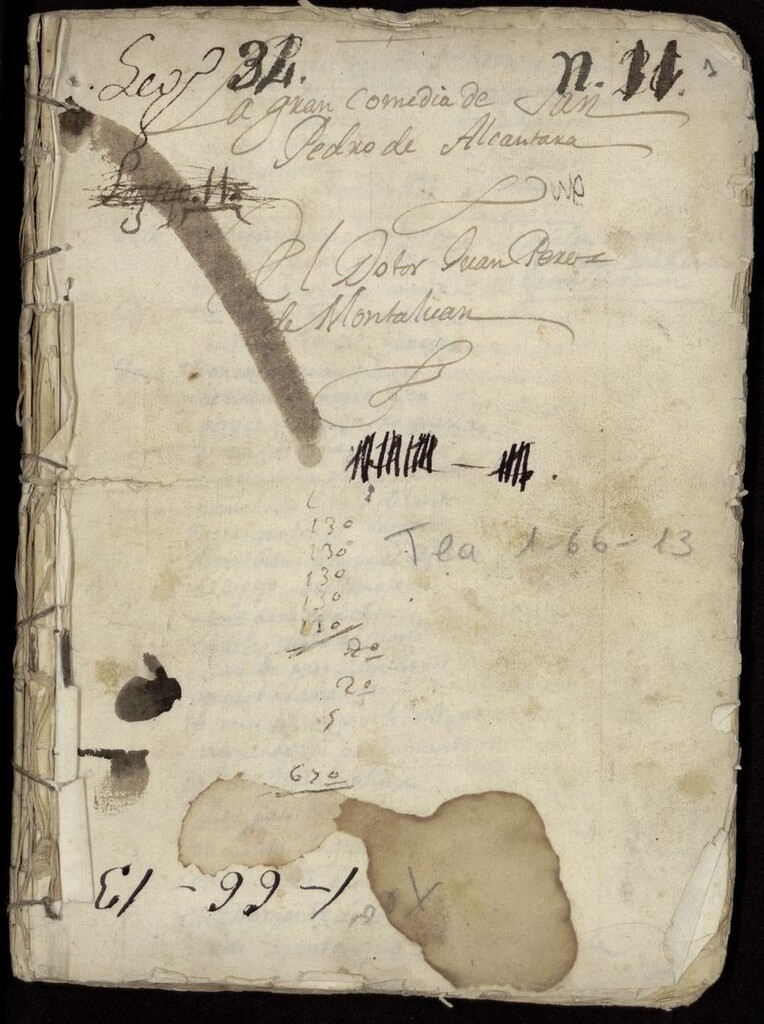 Leg.º 34. n. 11. 1
La gran Comedia de San
Pedro de Alcantara
El Dotor Juan Perez
de Montaluan
130
130
130
130
130
20
20
5
Tea 1-66-13
670
1-66-13